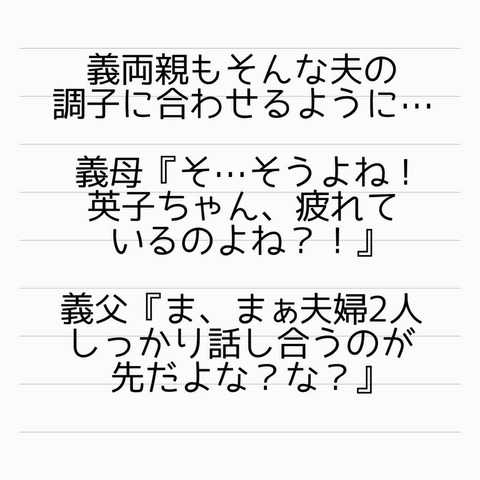 義両親もそんな夫の
調子に合わせるように…
義母『そ…そうよね！
英子ちゃん、疲れて
いるのよね？！』
義父『ま、まぁ夫婦2人
しっかり話し合うのが
先だよな？な？』